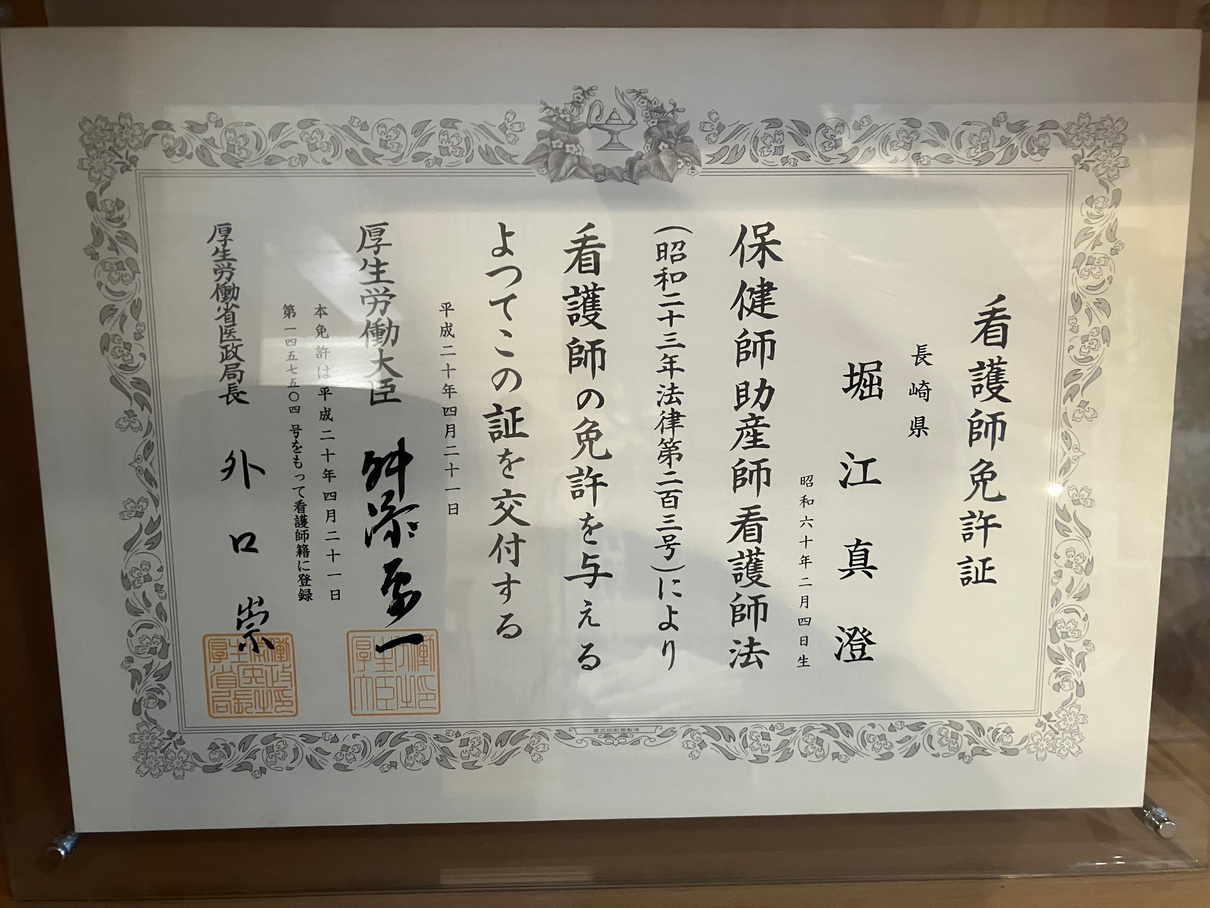 看護師免許証
長崎県
堀江真澄
昭和六十年二月四日生
保健師助産師看護師法
(昭和二十三年法律第二百三号)により
看護師の免許を与える
よつてこの証を交付する
平成二十年四月二十一日
厚生労働大臣 舛添要一
本免許は平成二十年四月二十一日
第一四五七五〇四号をもって看護師籍に登録
厚生労働省医政局長 外口崇